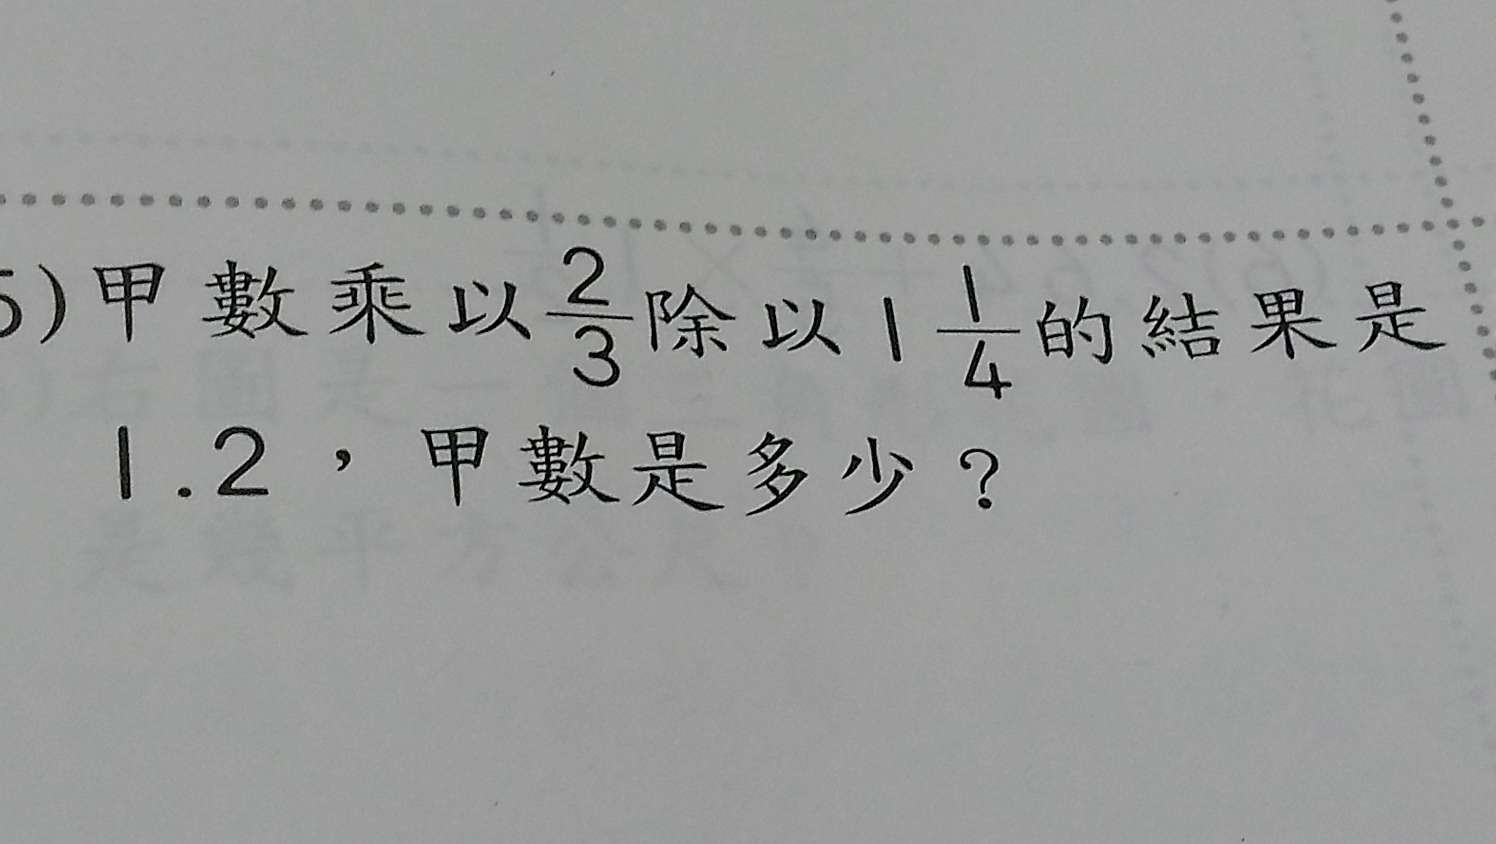 5)甲數乘以2/3除以1 1/4的結果是
1.2，甲數是多少？